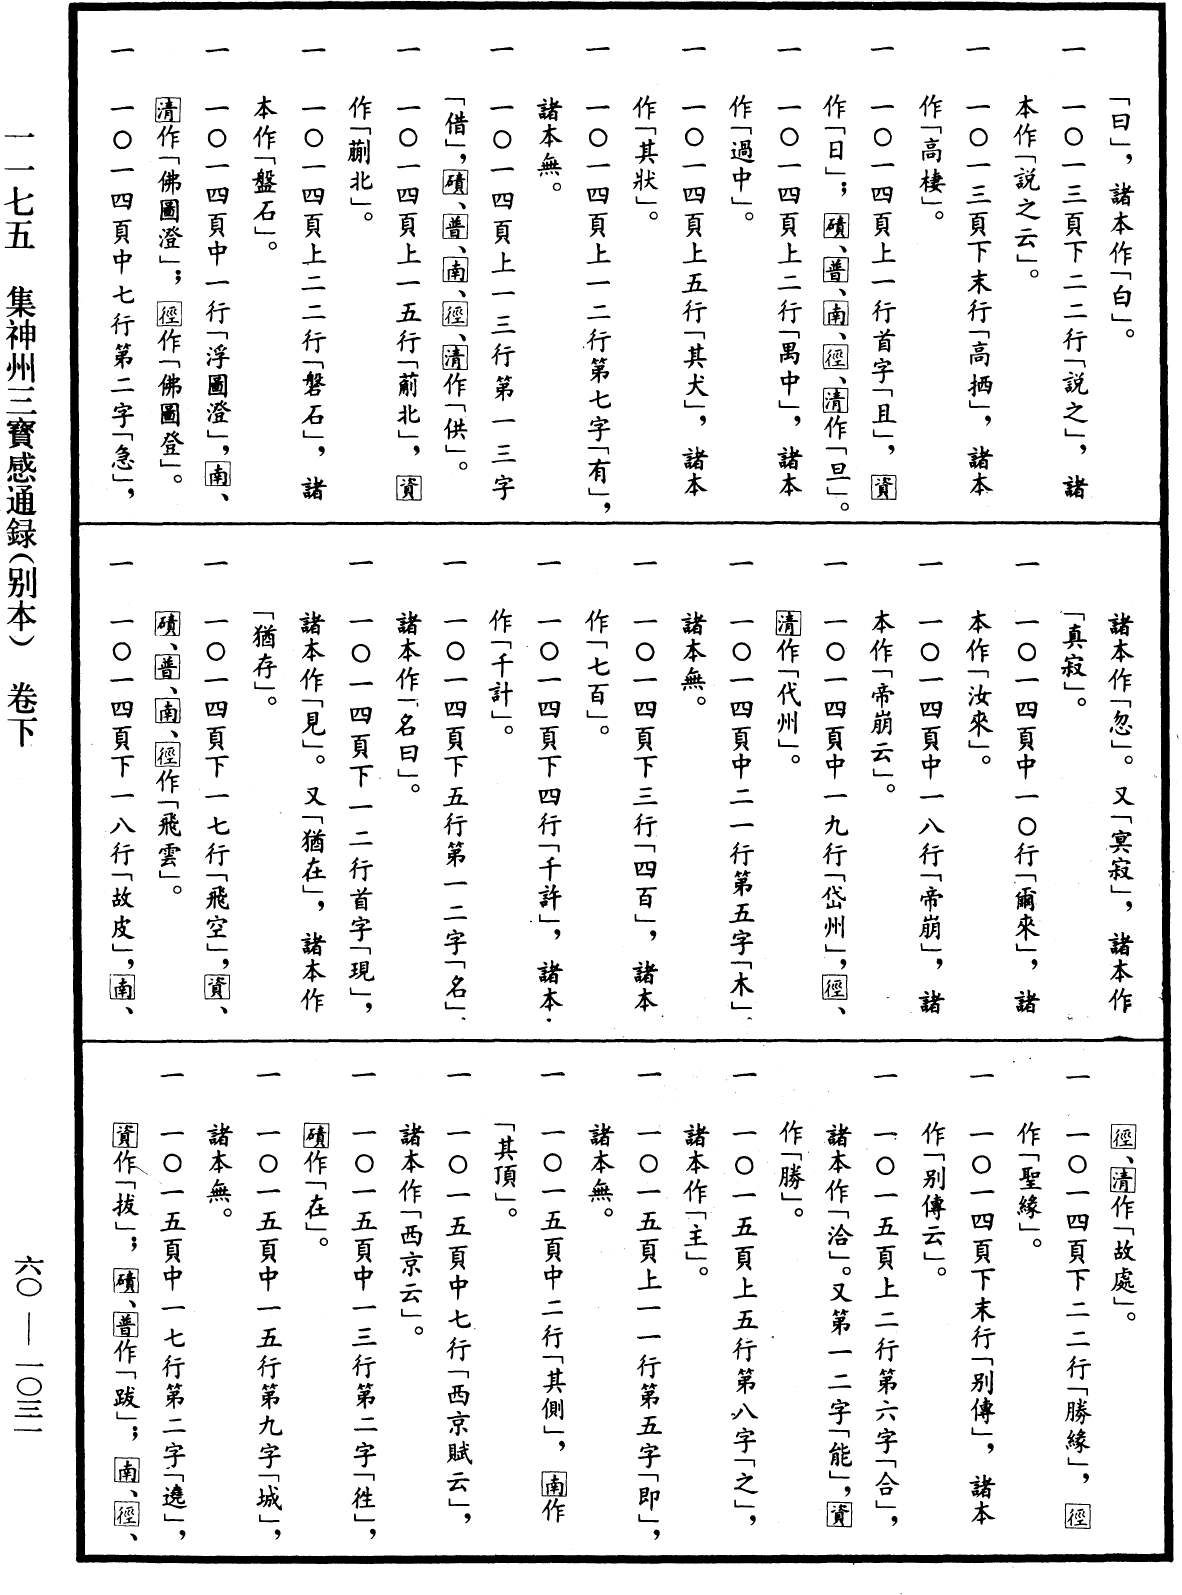 「曰」，諸本作「白」。
一　一〇一三頁下二二行「説之」，諸
本作「説之云」。
一　一〇一三頁下末行「高栖」，諸本
作「高棲」。
一　一〇一四頁上一行首字「且」，資
作「日」；磧、普、南、徑、清作「旦」。
一　一〇一四頁上二行「禺中」，諸本
作「過中」。
一　一〇一四頁上五行「其犬」，諸本
作「其狀」。
一　一〇一四頁上一二行第七字「有」，
諸本無。
一　一〇一四頁上一三行第一三字
「借」，磧、普、南、徑、清作「供」。
一　一〇一四頁上一五行「薊北」，資
作「蒯北」。
一　一〇一四頁上二二行「磐石」，諸
本作「盤石」。
一　一〇一四頁中一行「浮圖澄」，南、
清作「佛圖澄」；徑作「佛圖登」。
一　一〇一四頁中七行第二字「急」，
諸本作「忽」。又「冥寂」，諸本作
「真寂」。
一　一〇一四頁中一〇行「爾來」，諸
本作「汝來」。
一　一〇一四頁中一八行「帝崩」，諸
本作「帝崩云」。
一　一〇一四頁中一九行「岱州」，徑、
清作「代州」。
一　一〇一四頁中二一行第五字「木」，
諸本無。
一　一〇一四頁下三行「四百」，諸本
作「七百」。
一　一〇一四頁下四行「千許」，諸本
作「千計」。
一　一〇一四頁下五行第一二字「名」，
諸本作「名曰」。
一　一〇一四頁下一二行首字「現」，
諸本作「見」。又「猶在」，諸本作
「猶存」。
一　一〇一四頁下一七行「飛空」，資、
磧、普、南、徑作「飛雲」。
一　一〇一四頁下一八行「故皮」，南、
徑、清作「故處」。
一　一〇一四頁下二二行「勝緣」，徑
作「聖緣」。
一　一〇一四頁下末行「别傳」，諸本
作「别傳云」。
一　一〇一五頁上二行第六字「合」，
諸本作「洽」。又第一二字「能」，資
作「勝」。
一　一〇一五頁上五行第八字「之」，
諸本作「主」。
一　一〇一五頁上一一行第五字「即」，
諸本無。
一　一〇一五頁中二行「其側」，南作
「其頂」。
一　一〇一五頁中七行「西京賦云」，
諸本作「西京云」。
一　一〇一五頁中一三行第二字「徃」，
磧作「在」。
一　一〇一五頁中一五行第九字「城」，
諸本無。
一　一〇一五頁中一七行第二字「遶」，
資作「拔」；磧、普作「跋」；南、徑、
一一七五　集神州三寶感通録（别本）　卷下
六〇—一〇三一